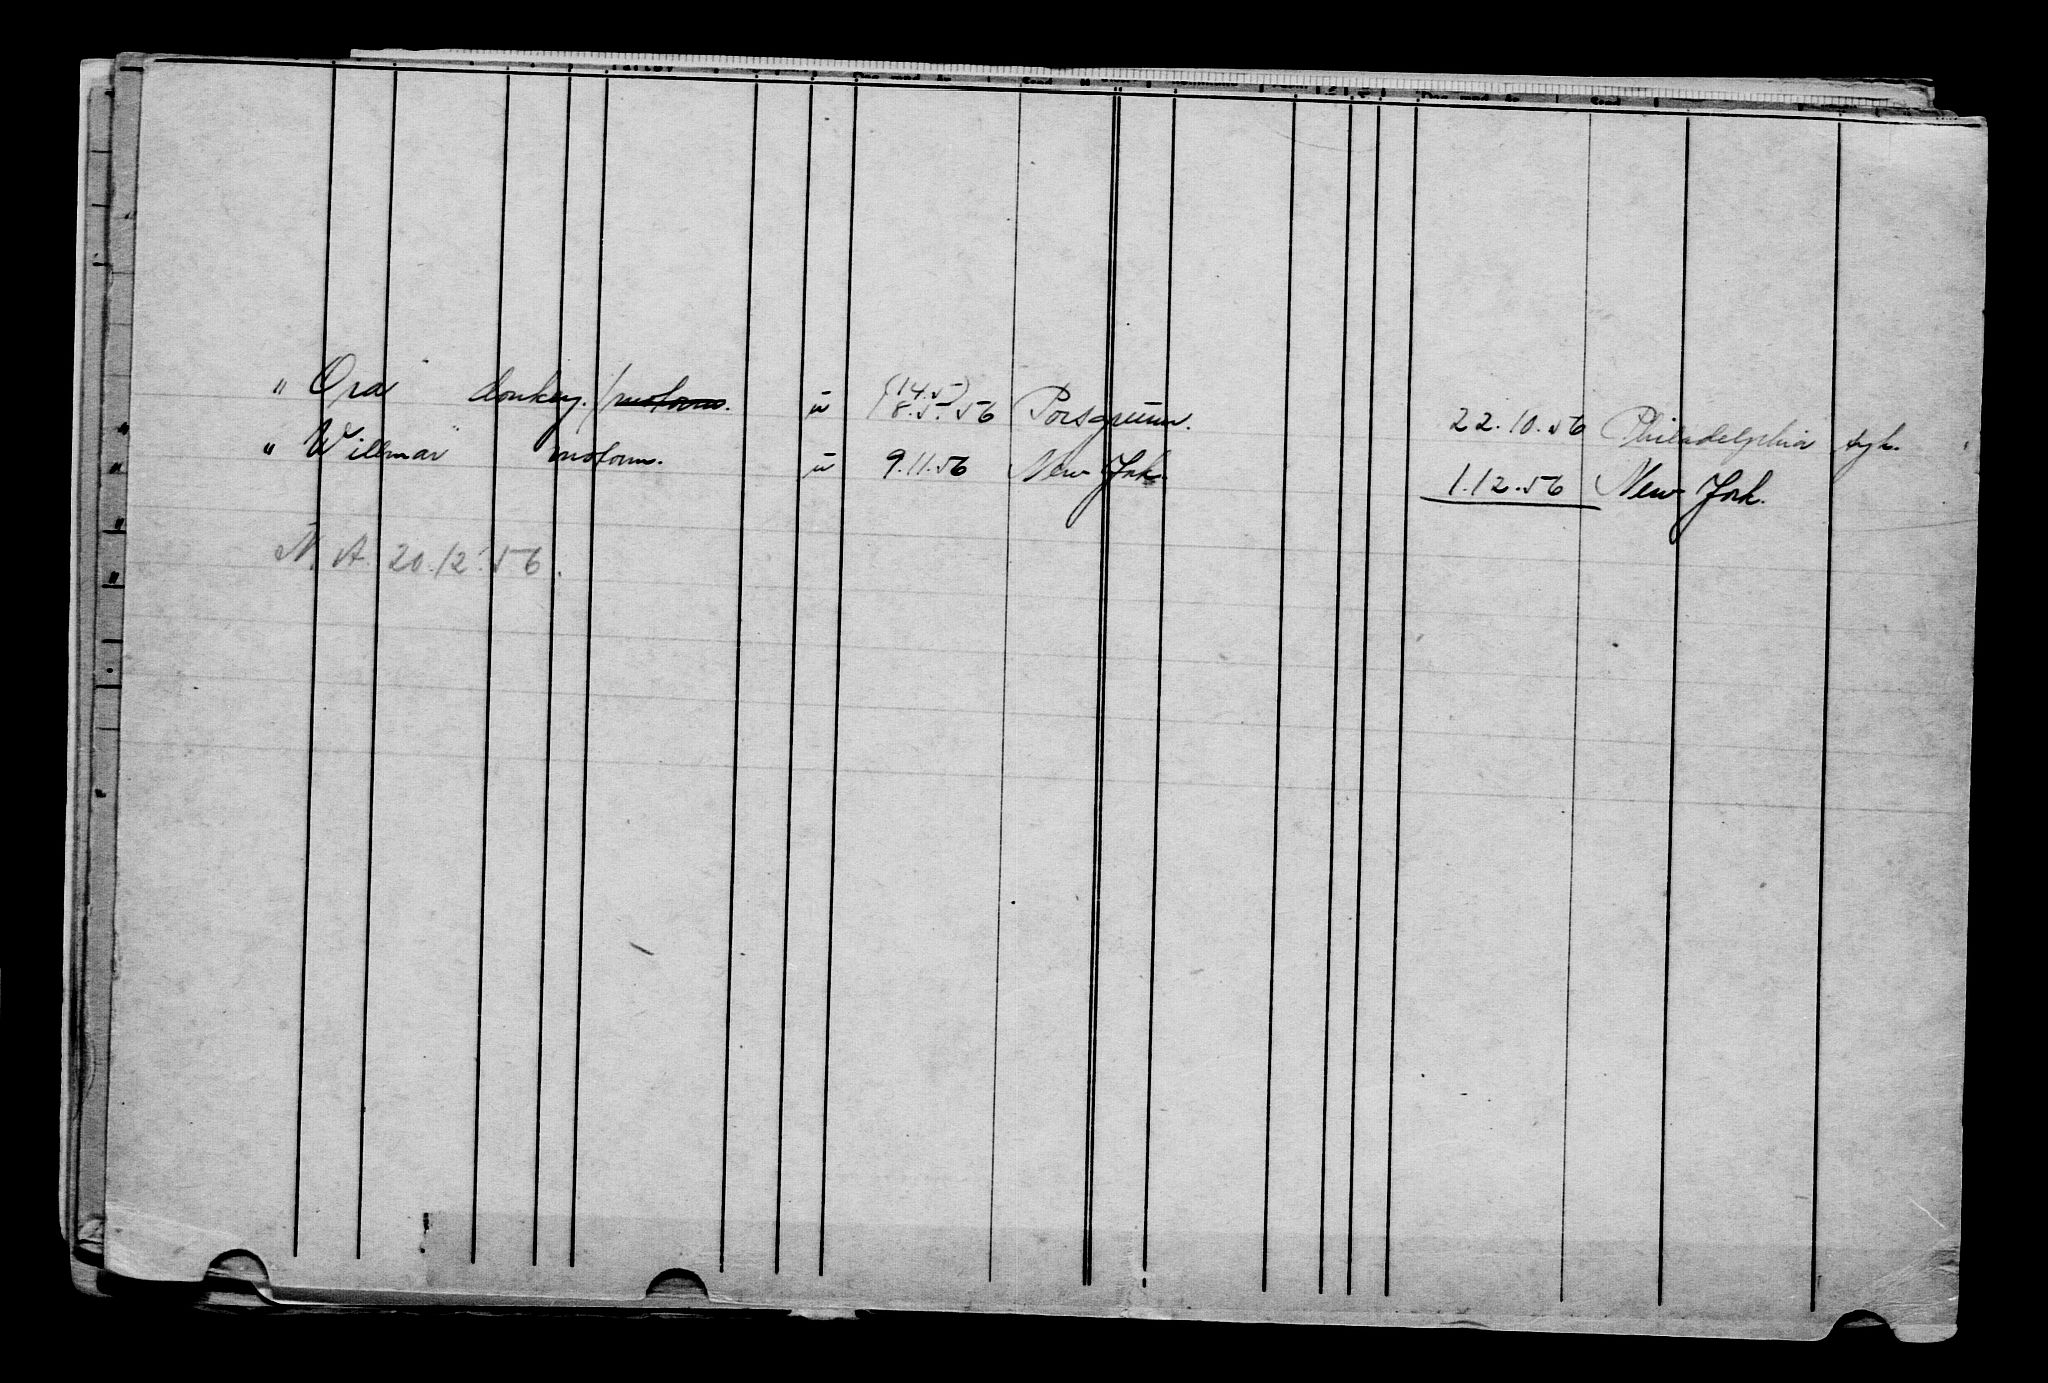 " Ora donkey. / motorm. u (14.5) 18.5.56 Porsgrunn. 22.10.56 Philadelphia syk.
" Willmar motorm. u 9.11.56 New York. 1.12.56 New York.
N. A. 20.12.56.